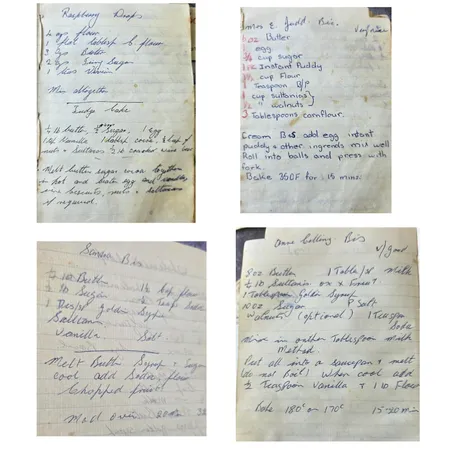 Raspberry Drops
6 ozs flour
1 flat tablesp C. flour
3 ozs Butter
2 ozs Icing Sugar
1 Teas Vanilla
Mix altogether
Fudge Cake
1/2 lb butter, Sugar, 1 egg
1 tsp Vanilla 1 tablesp cocoa, cup of
nuts & sultanas 1/2 lb biscuits
Melt butter sugar cocoa together
hot and beaten egg and vanilla
biscuits, nuts & sultanas
if required.
Mrs E. Judd. Bis. V/nice
oz Butter
egg
cup sugar
Instant Puddy
cup Flour
Teaspoon B/P
cup sultanas
" walnuts
3 Tablespoons cornflour.
Cream B&S add egg instant
puddy & other ingreds mix well
Roll into balls and press with
fork.
Bake 350F for 15 mins.
1/2 lb Butter 1 lb S.R flour
1/2 lb Sugar 1/2 Teasp Soda
1 Des/sp Golden Syrup
Sultanas
Vanilla Salt
Melt Butter Syrup & Sugar
cool add Soda flour
Chopped fruit
Mod oven 20
Bis v/good
8 oz Butter 1 Table/sp milk
1/2 lb Sultanas or x Fruit
1 Tablespoon Golden Syrup
10 oz Sugar P Salt
walnuts (optional) 1 Teaspn
Soda
in another Tablespoon milk
Method.
Put all into a saucepan & melt
do not Boil! When cool add
1/2 Teaspoon Vanilla & 1 lb Flour
Bake 180° or 170° 15-20 min